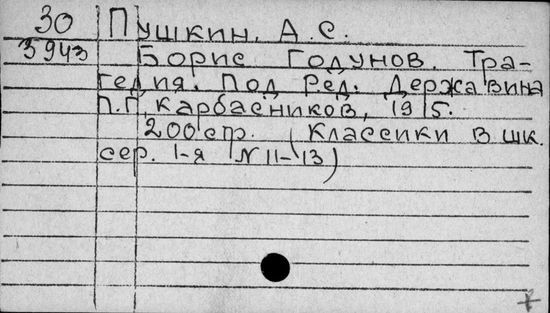 30 Пушкин, А.С.
3943 Борис Годунов. Тра-
гедия. Под ред. Державина
П.Г Карбасников, 1915.
200 стр. (Классики в шк.
сер. 1-я N 11-13)